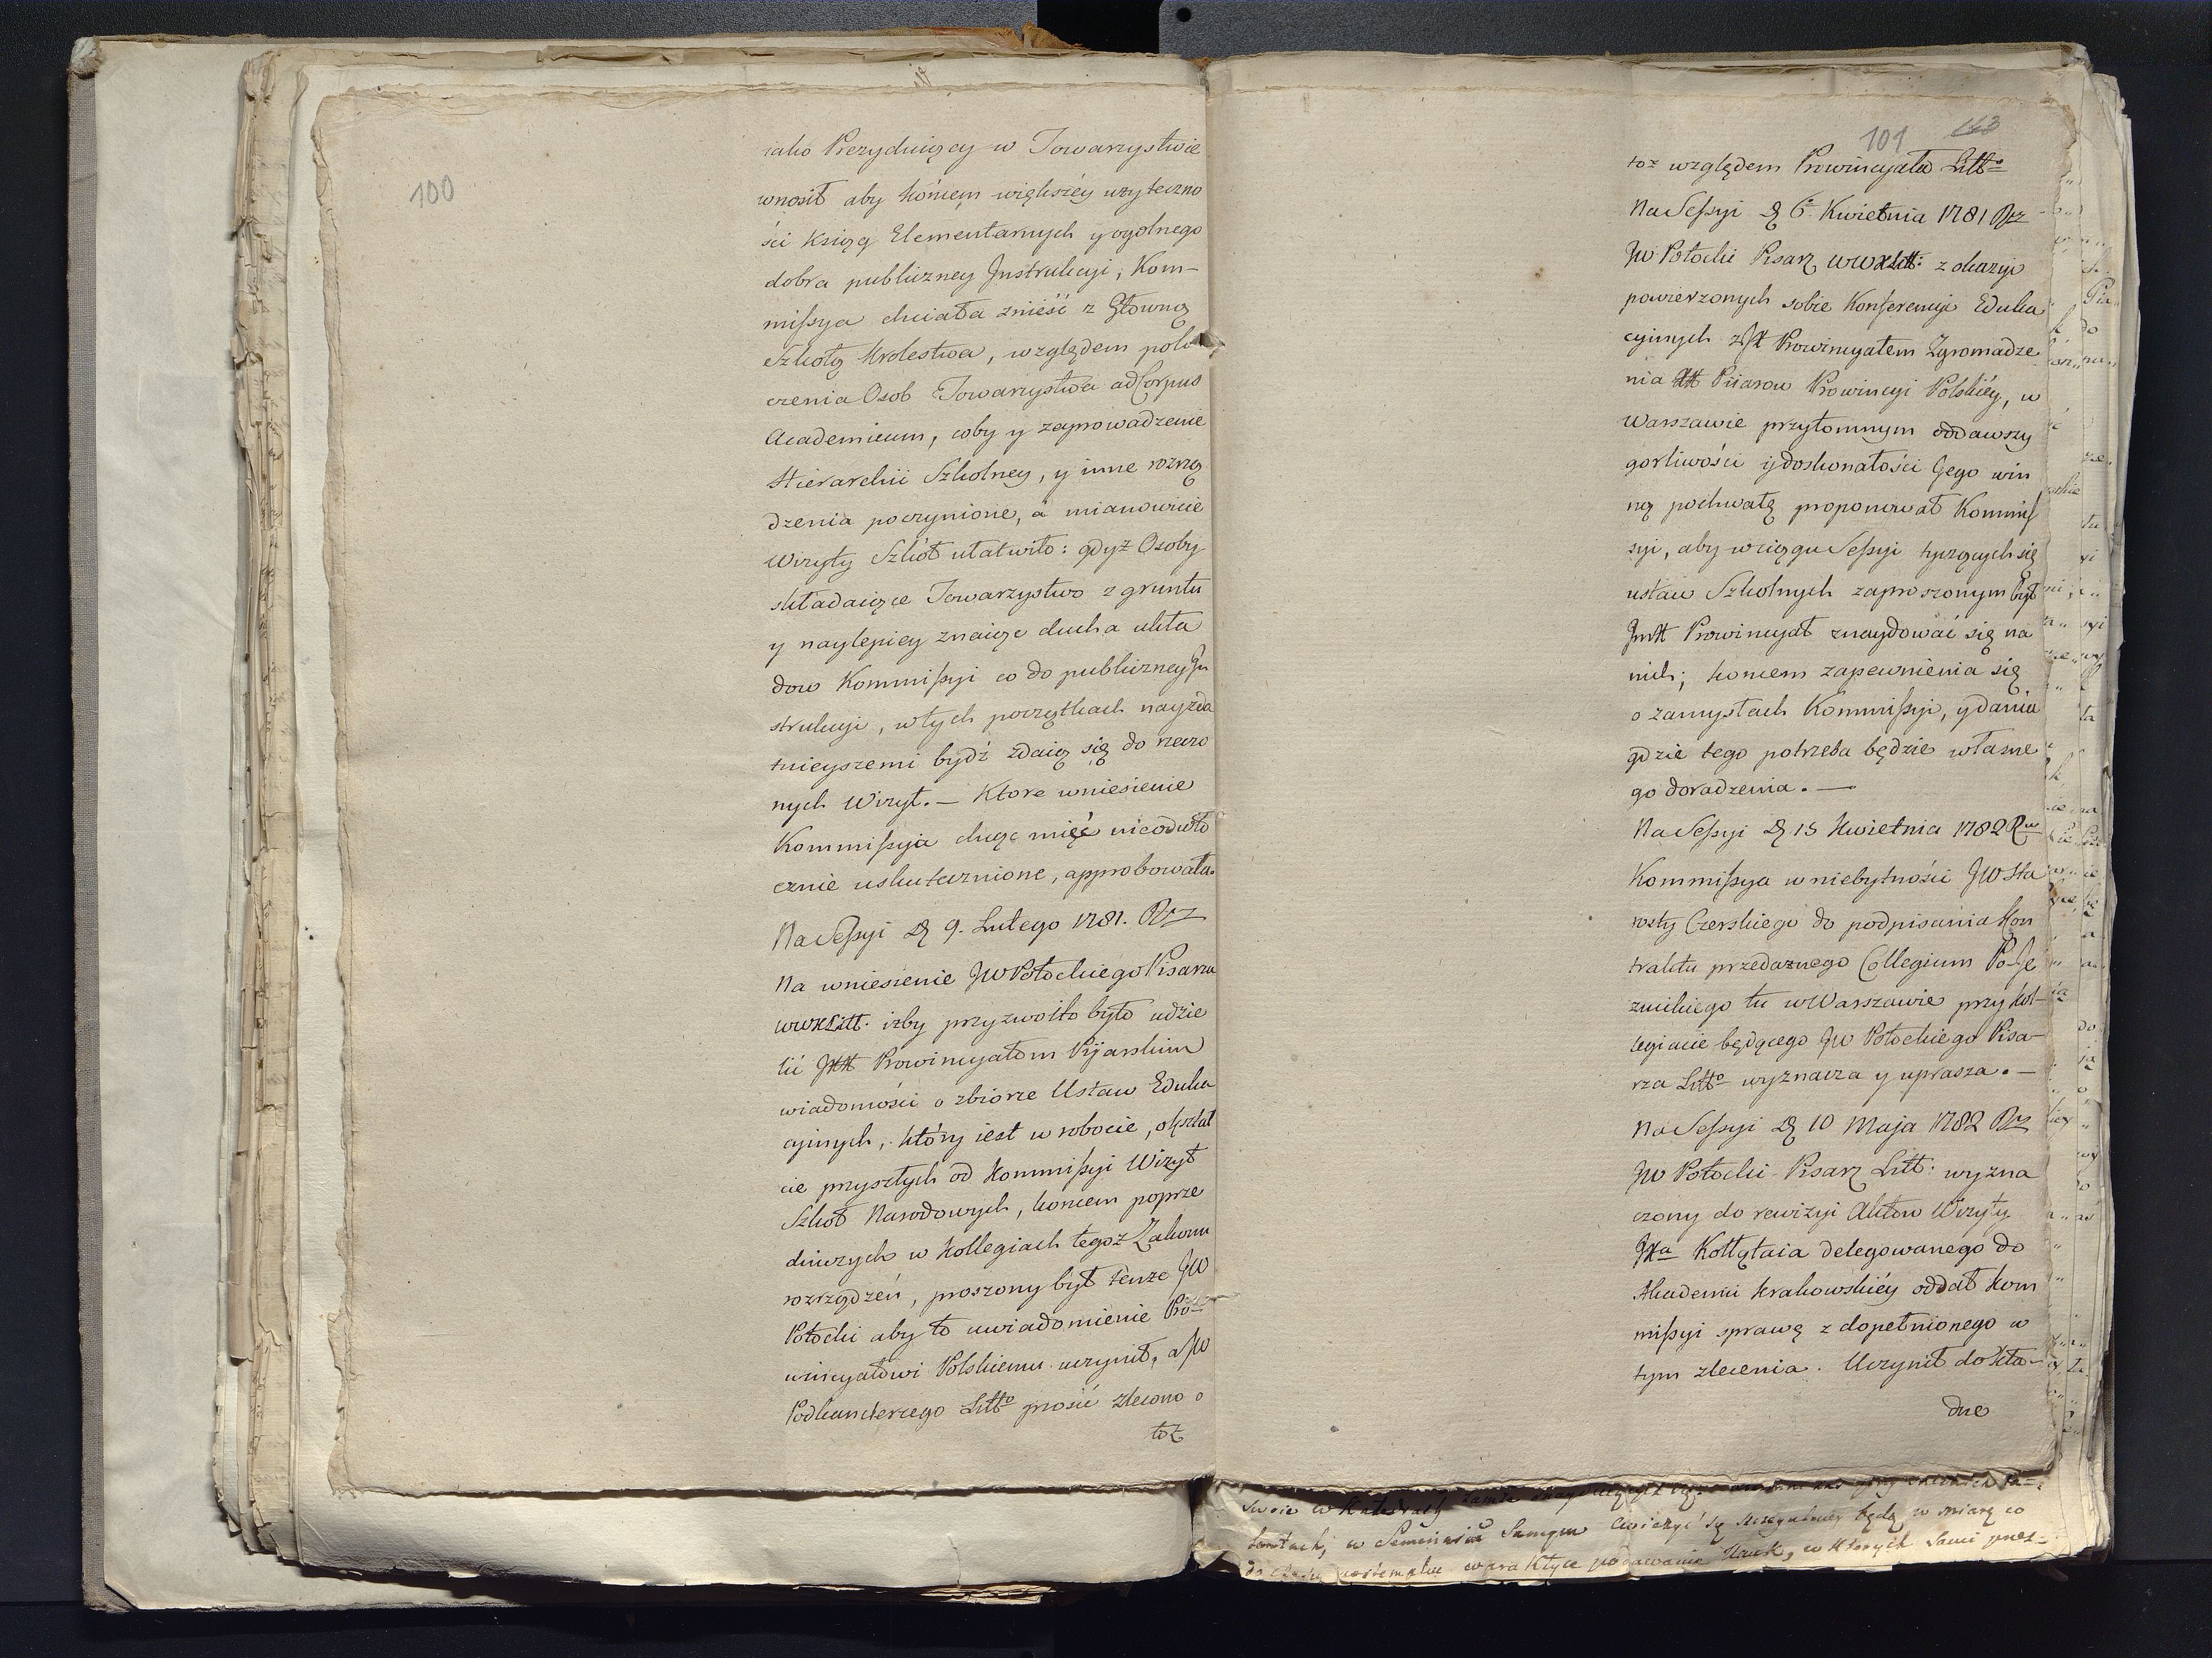 100
iako Prezyduiący w Towarzystwie
wnosił aby końcem większéy użyteczno
ści Ksiąg Elementarnych y ogolnego
dobra publiczney Jnstrukcyi, Kom-
mißya chciała znieść z Głowną
Szkołą Krolestwa, względem poło
czenia Osob Towarzystwa ad Corpus
Academicum, coby y zaprowadzenie
Hierarchii Szkolney, y inne rozrzą
dzenia poczynione, a mianowicie
Wizyty Szkół ułatwiło: gdyż Osoby
składaiące Towarzystwo z gruntu
y naylepiey znaiąc ducha ukła
dow Kommißyi co do publiczney Jn
strukcyi, w tych początkach nayzda
tnieyszemi bydź zdaią się do rzeczo
nych Wizyt. — Ktore wniesienie
Kommißyja chcąc mieć nieodwło
cznie uskutecznione, approbowała.
Na Seßyi D 9. Lutego 1781. Rz
Na wniesienie JW Potockiego Pisarza
WWXLitt. iżby przyzwoito było udzie
lić JXX Prowincyałom Pijarskim
wiadomości o zbiorze Ustaw Eduka
cyinych, który iest w robocie, o kształ
cie przyszłych od Kommißyi Wizyt
Szkoł Narodowych, końcem poprze
dniczych w Kollegiach tegoż Zakonu
rozrządzeń, proszony był tenże JW
Potocki aby to uwiadomienie Pro-
wincyałowi Polskiemu uczynił, a JW
Podkanclerzego Litto prosić zlecono o
toż
101
113
toż względem Prowincyała Litto
Na Seßyi D 6 Kwietnia 1781 Rz
JW Potocki Pisarz WWXLitt: z okazyi
powierzonych sobie Konferencyi Eduka
cyinych z JX Prowincyałem Zgromadze
nia XX Piiarow Prowincyi Polskiéy, w
Warszawie przytomnym oddawszy
gorliwości y doskonałości Jego win
ną pochwałę proponował Kommis
syi, aby w ciągu Seßyi tyczących się
ustaw Szkolnych zaproszonym był
JmX Prowincyał znaydować się na
nich; końcem zapewnienia się
o zamysłach Kommißyi, y dania
gdzie tego potrzeba będzie własne
go doradzenia. —
Na Seßyi D 15 Kwietnia 1782 Ru
Kommißya w niebytności JW Sta
rosty Czerskiego do podpisania Kon
traktu przedaznego Collegium Po-Je
zuickiego tu w Warszawie przy Kol-
legiacie będącego JW Potockiego Pisa-
rza Litto wyznacza y uprasza. —
Na Seßyi D 10 Maja 1782 Rz
JW Potocki Pisarz Litt: wyzna
czony do rewizyi Aktow Wizyty
JXa Kołłątaia delegowanego do
Akademii Krakowskiéy oddał Kom
mißyi sprawę z dopełnionego w
tym zlecenia. Uczynił dokła-
dne